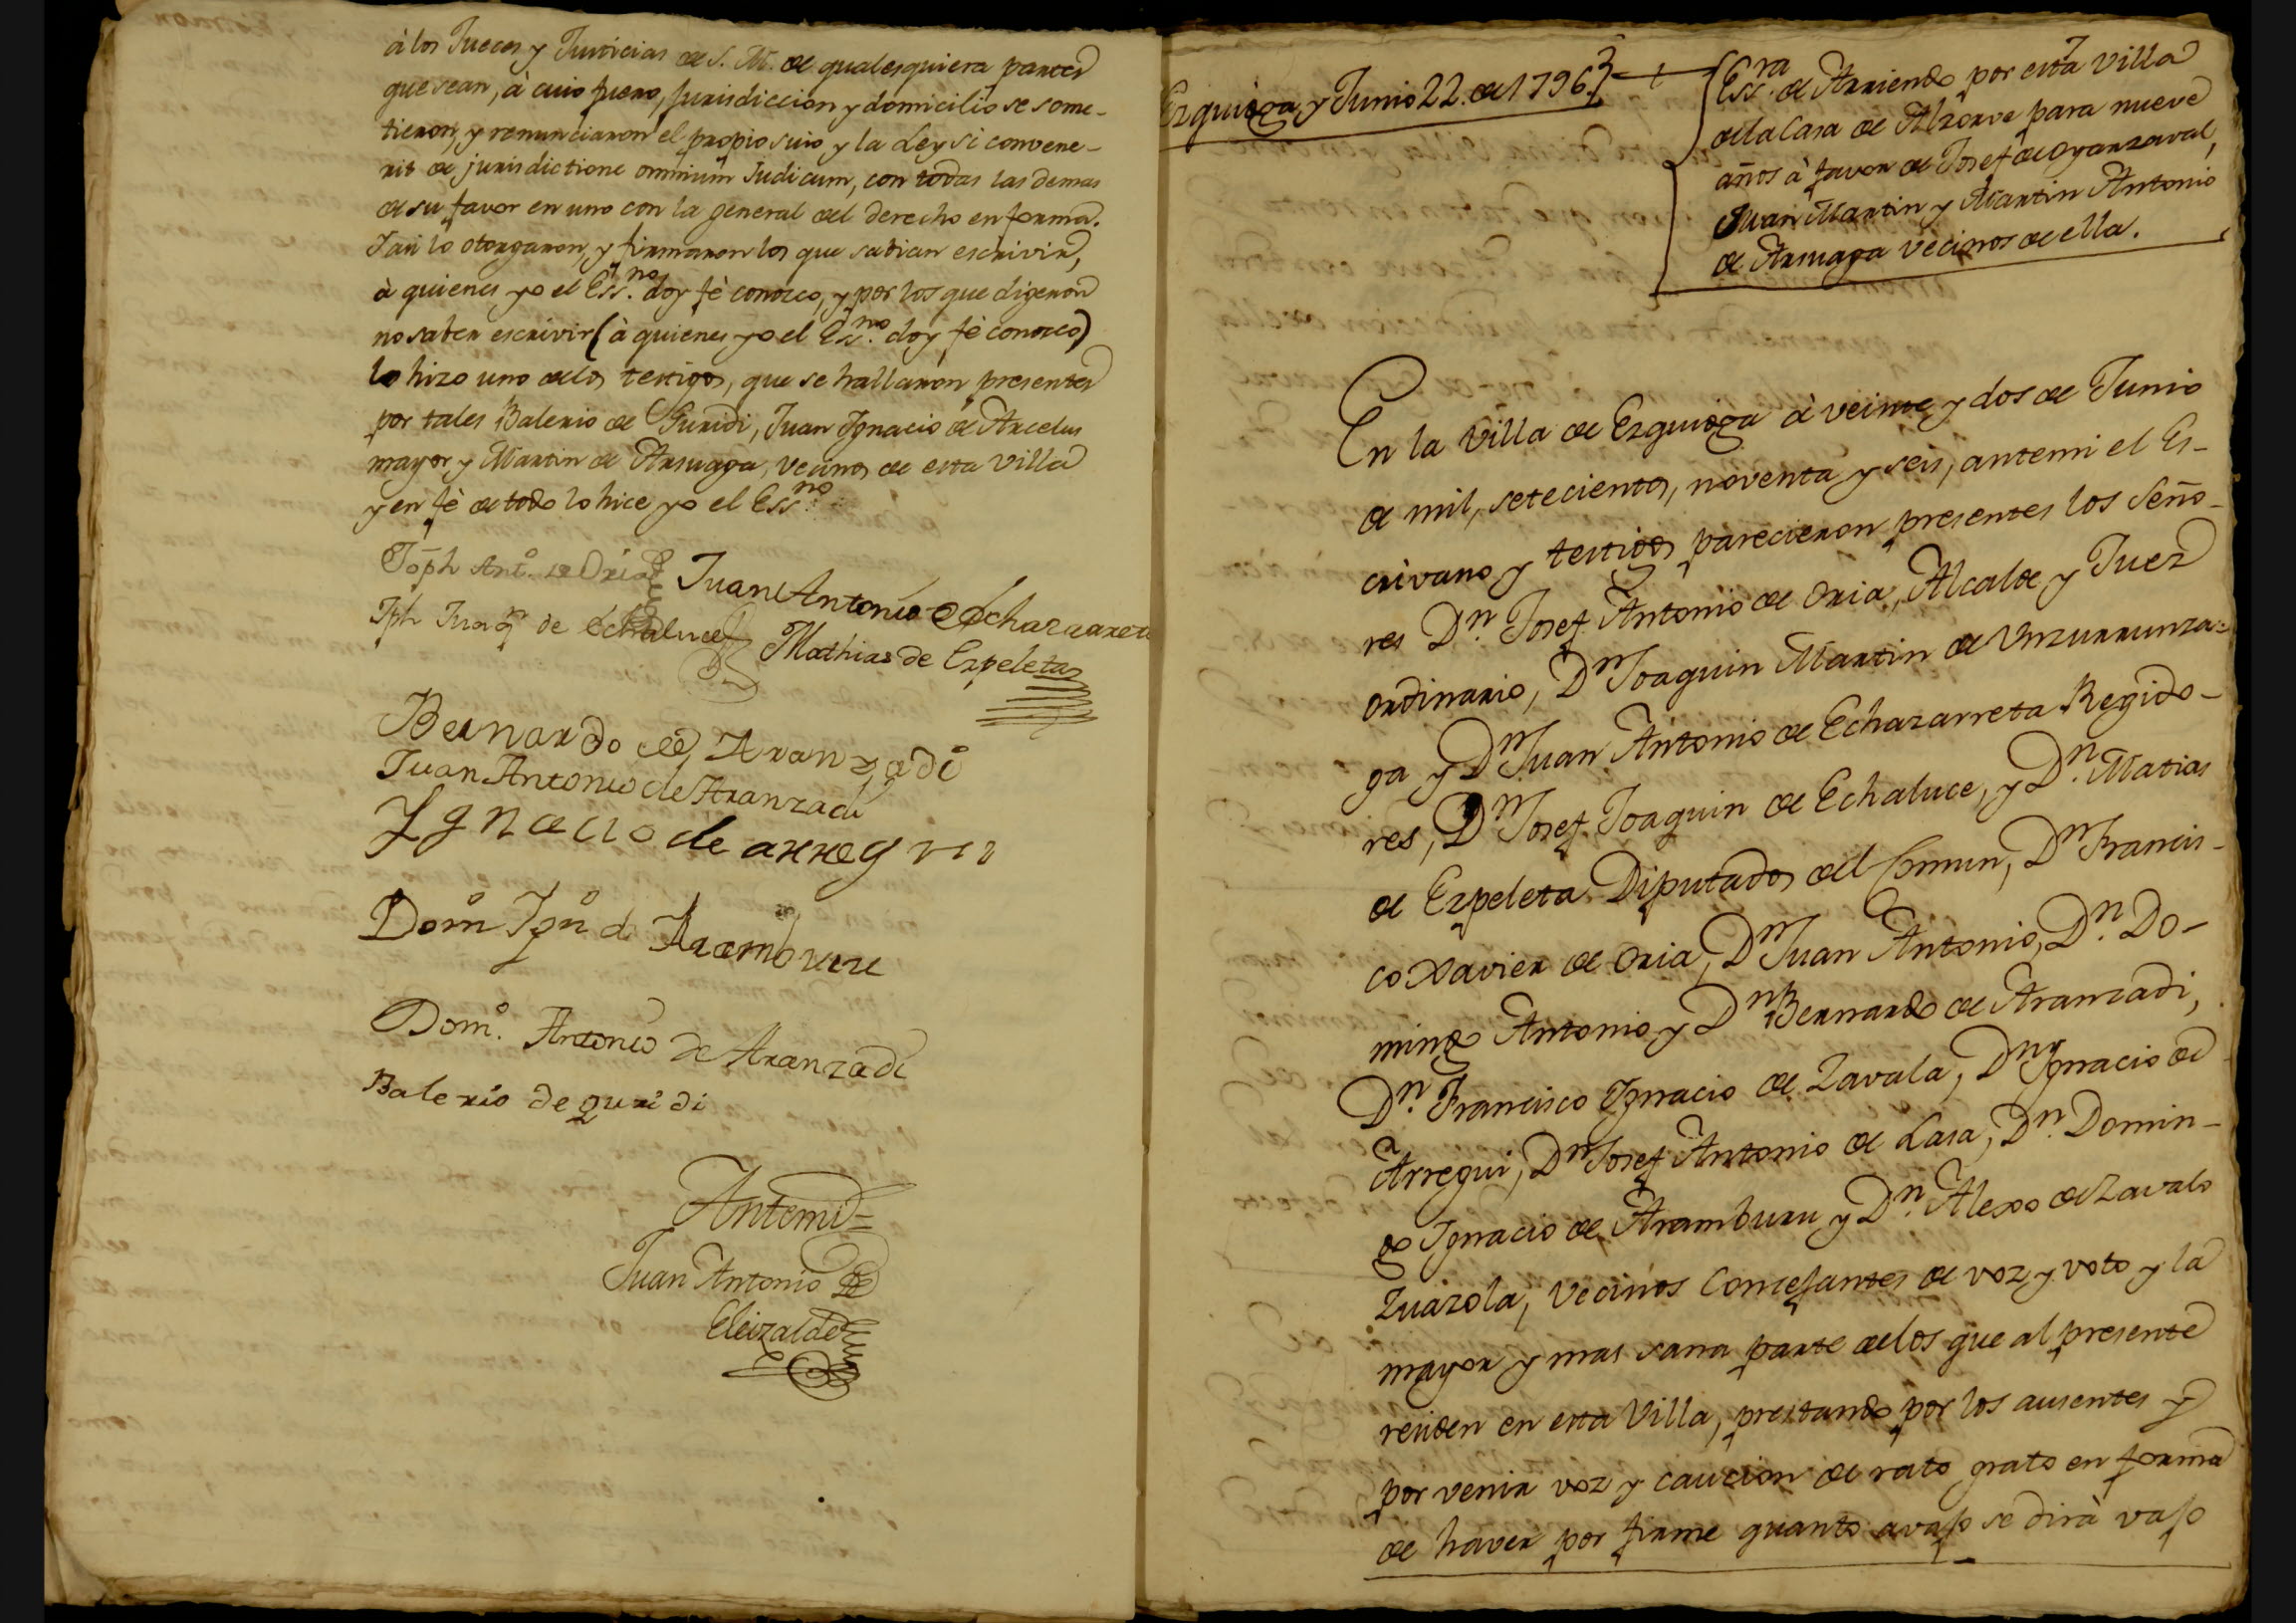 à los Jueces y Justicias de S. M. de qualesquiera partes
que sean, à cuio fuero, jurisdiccion y domicilio se some-
tieron, y renunciaron el propio suio y la Ley si convene-
rit de jurisdictione omnium Judicum, con todas las demas
de su favor en uno con la general del derecho en forma.
I asi lo otorgaron, y firmaron los que sabian escrivir,
à quienes yo el Ess.no doy fè conozco, y por los que digeron
no saber escrivir (à quienes yo el Ess.no doy fè conozco)
lo hizo uno de los testigos, que se hallaron presentes
por tales Balerio de Guridi, Juan Ignacio de Arcelus
mayor y Martin de Arsuaga, vecinos de esta Villa
y en fè de todo lo hice yo el Ess.no
Jõph Ant.o de Oria Juan Antonio de Echazarreta
Jph Juaq.n de Echaluce Mathias de Ezpeleta
Bernardo de Aranzadi
Juan Antonio de Aranzadi
Ygnacio de arregui
Dom.o Ign.o de Aramburu
Dom.o Antonio de Aranzadi
Balerio de guridi
Antemi=
Juan Antonio de
Eleizalde
Ezquioga y Junio 22. de 1796.
Ess.ra de Arriendo por esta Villa
de la Casa de Alzorve para nueve
años à favor de Josef de Oyarzaval,
Juan Martin y Martin Antonio
de Arsuaga vecinos de ella.
En la Villa de Ezquioga à veinte y dos de Junio
de mil, setecientos, noventa y seis, antemi el Es-
crivano y testigos parecieron presentes los Seño-
res D.n Josef Antonio de Oria, Alcalde y Juez
ordinario, D.n Joaquin Martin de Unzurrunza=
ga y D.n Juan Antonio de Echazarreta Regido-
res, D.n Josef Joaquin de Echaluce, y D.n Matias
de Ezpeleta Diputados del Comun, D.n Francis-
co Xavier de Oria, D.n Juan Antonio, D.n Do-
mingo Antonio y D.n Bernardo de Aranzadi,
D.n Francisco Ignacio de Zavala, D.n Ignacio de
Arregui, D.n Josef Antonio de Lasa, D.n Domin-
go Ignacio de Aramburu y D.n Alexo de Zavalo
Zuazola, Vecinos Concejantes de voz y voto y la
mayor y mas sana parte de los que al presente
residen en esta Villa, prestando por los ausentes y
por venir voz y caucion de rato grato en forma
de haver por firme quanto avajo se dirà vajo